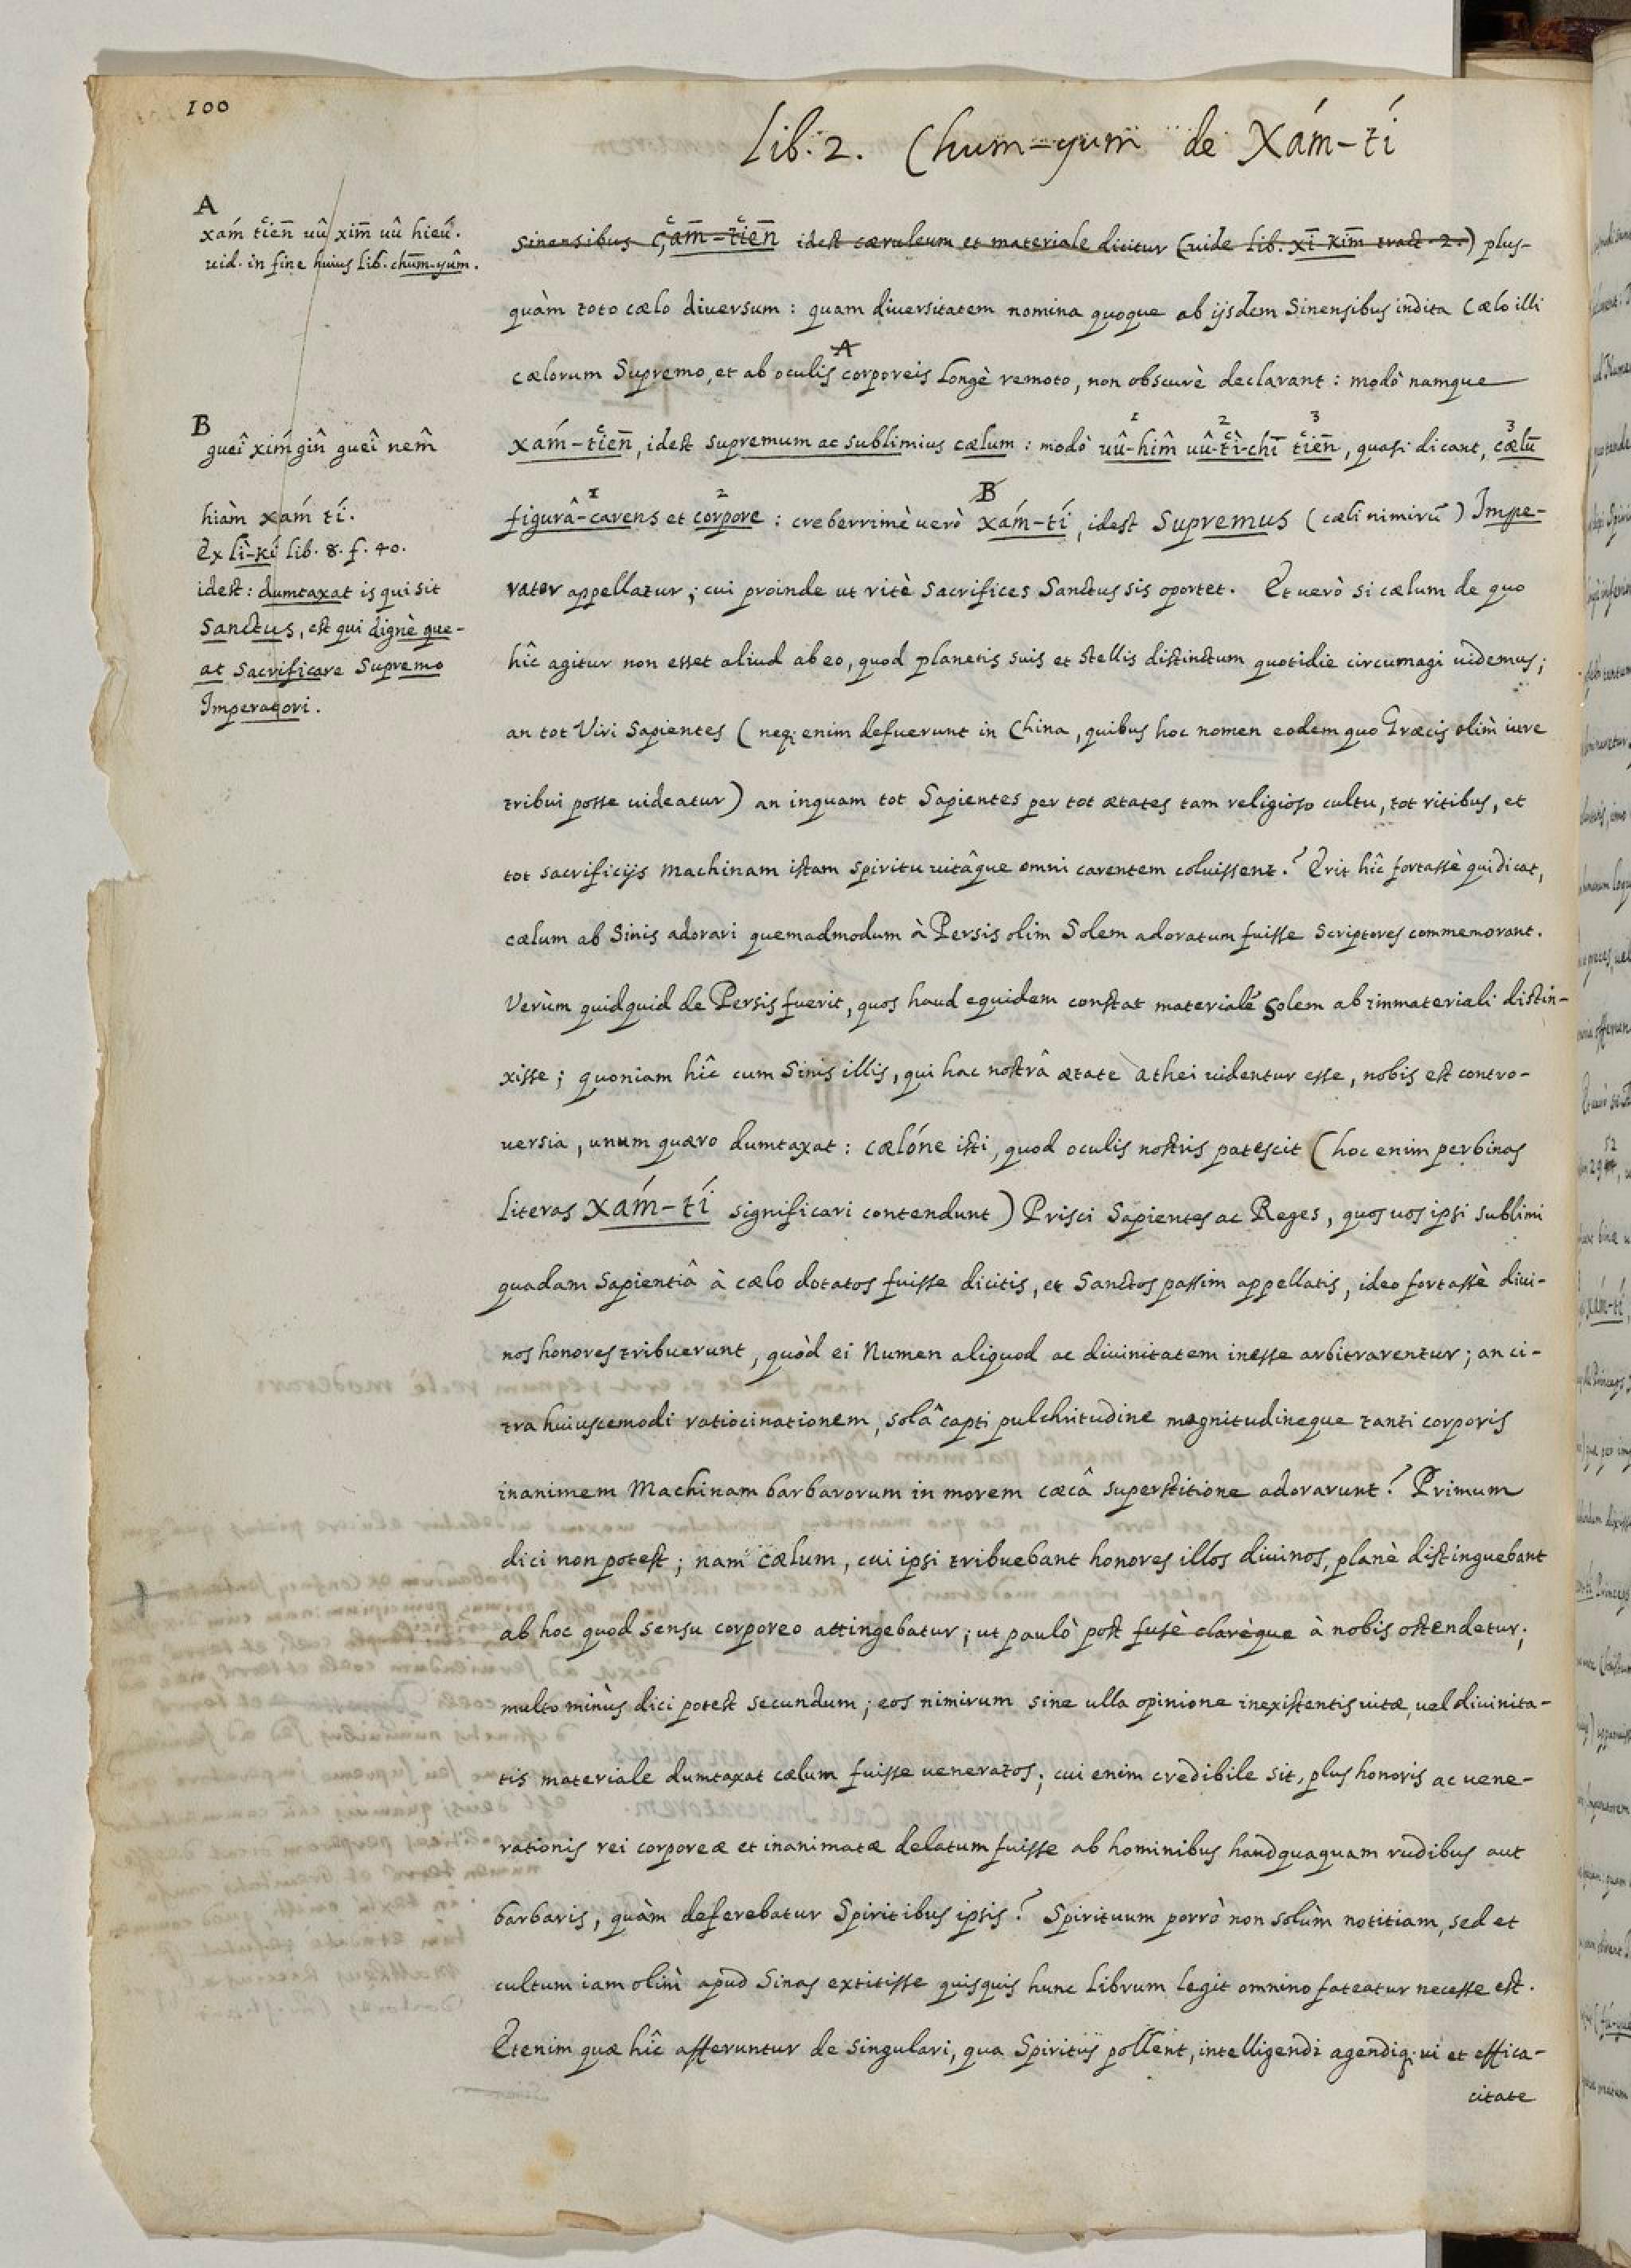 100
Lib. 2. Chum-yum de Xám-tí
A
xám tien̄ uû xim̄ uû hieú.
uid. in fine huius Lib. chum̄-yûm.
B
gueî xiḿ gin̂ gueî nem̂
hiàm xám tí.
Ex lì-kí lib. 8. f. 40.
idest: dumtaxat is qui sit
Sanctus, est qui dignè que-
at Sacrificare Supremo
Imperatori.
sinensibus çam̄-tien̄ idest cæruleum et materiale dicitur (uide Lib. xī kim̄ tract. 2.) plus-
quàm toto cælo diuersum: quam diuersitatem nomina quoque ab ijsdem Sinensibus indita Cælo illi
A
cælorum Supremo, et ab oculis corporeis longè remoto, non obscurè declarant: modò namque
1 2 3 3
xám-tien̄, idest supremum ac sublimius cælum: modò uû-him̂ uû-tì-chī tien̄, quasi dicant, cælū
1 2 B
figurâ-carens et corpore: creberrimè uerò xám-tí, idest Supremus (cæli nimirū) Impe-
rator appellatur; cui proinde ut ritè Sacrifices Sanctus sis oportet. Et uerò si cælum de quo
hîc agitur non esset aliud ab eo, quod planetis suis et stellis distinctum quotidie circumagi uidemus;
an tot Viri Sapientes (neq; enim defuerunt in China, quibus hoc nomen eodem quo Græcis olim̀ iure
tribui posse uideatur) an inquam tot Sapientes per tot ætates tam religioso cultu, tot ritibus, et
tot sacrificijs machinam istam spiritu uitâque omni carentem coluissent? Erit hîc fortassè qui dicat,
cælum ab Sinis adorari quemadmodum à Persis olim Solem adoratum fuisse Scriptores commemorant.
Verùm quidquid de Persis fuerit, quos haud equidem constat materialē Solem ab immateriali distin-
xisse; quoniam hîc cum Sinis illis, qui hac nostrâ ætate Athei uidentur esse, nobis est contro-
uersia, unum quæro dumtaxat: cælóne isti, quod oculis nostris patescit (hoc enim per binas
literas xám-tí significari contendunt) Prisci Sapientes ac Reges, quos uos ipsi sublimi
quadam Sapientiâ à cælo dotatos fuisse dicitis, et Sanctos passim appellatis, ideo fortassè diui-
nos honores tribuerunt, quòd ei Numen aliquod ac diuinitatem inesse arbitrarentur; an ci-
tra huiuscemodi ratiocinationem, solâ capti pulchritudine magnitudineque tanti corporis
inanimem Machinam barbarorum in morem cæcâ superstitione adorarunt? Primum
dici non potest; nam cælum, cui ipsi tribuebant honores illos diuinos, planè distinguebant
ab hoc quod sensu corporeo attingebatur; ut paulò post fusè clarèque à nobis ostendetur;
multo minùs dici potest secundum; eos nimirum sine ulla opinione inexistentis uitæ, uel diuinita-
tis materiale dumtaxat cælum fuisse ueneratos; cui enim credibile sit, plus honoris ac uene-
rationis rei corporeæ et inanimatæ delatum fuisse ab hominibus haudquaquam rudibus aut
barbaris, quàm deferebatur Spiritibus ipsis? Spirituum porrò non solùm notitiam, sed et
cultum iam olim̀ apud Sinas extitisse quisquis hunc Librum legit omnino fateatur necesse est.
Etenim quæ hîc afferuntur de singulari, qua Spiritus pollent, intelligendi agendiq; ui et effica-
citate